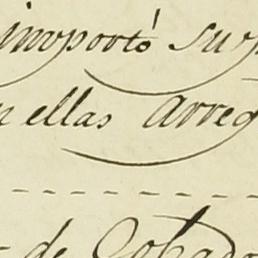 importó su
n ellas Arreg
de Cobado